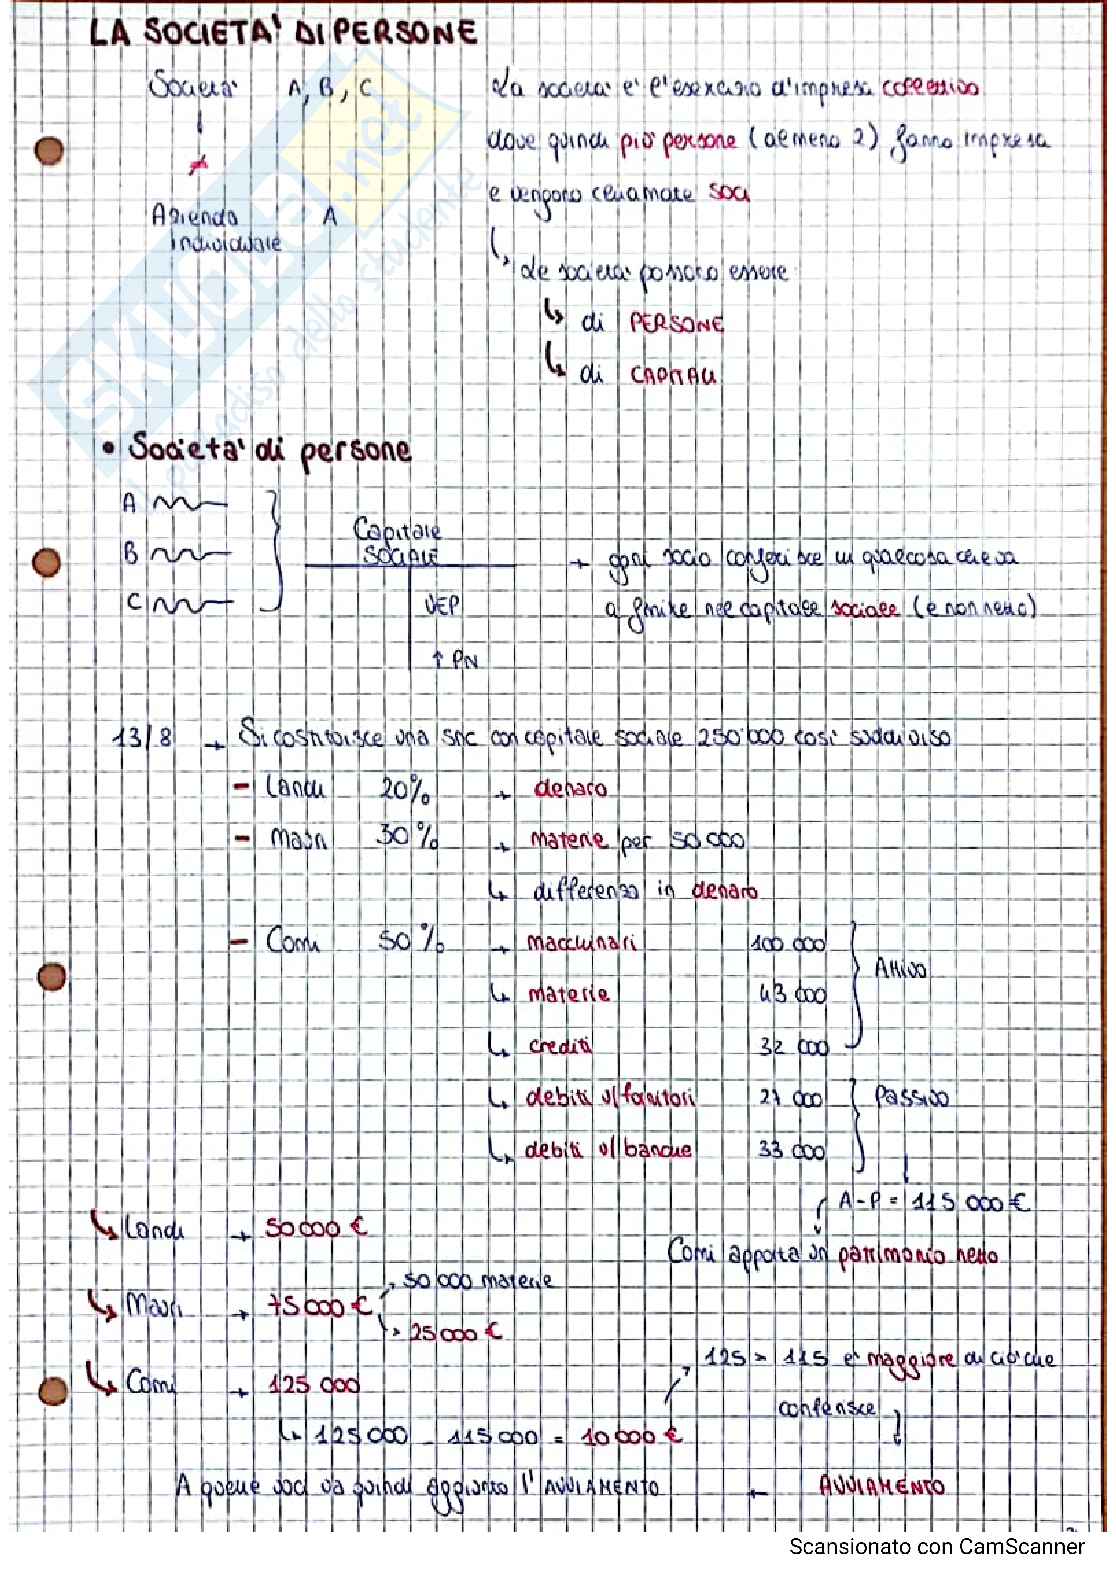 LA SOCIETA' DI PERSONE
Società A, B, C La società e' l'esercizio d'impresa collettivo
dove quindi più persone (almeno 2) fanno impresa
≠
e vengono chiamate soci
Azienda A
individuale
Le società possono essere
di PERSONE
di CAPITALI
SKUOLA.net
il paradiso dello studente
• Societa' di persone
A
Capitale
SOCIALE
B
ogni socio conferisce in qualcosa che va
C
VEP
a finire nel capitale sociale (e non netto)
↑ PN
13/8 → Si costituisce una snc con capitale sociale 250'000 così suddiviso
- Landi 20% → denaro
- Masri 30% → materie per 50 000
↳ differenza in denaro
- Comi 50% → macchinari 100 000
Attivo
↳ materie 43 000
↳ crediti 32 000
↳ debiti v/fornitori 27 000 Passivo
↳ debiti v/banche 33 000
A-P = 115 000 €
↳ Landi → 50 000 €
Comi apporta un patrimonio netto
50 000 materie
↳ Masri → 75 000 €
25 000 €
125 > 115 e' maggiore di ciò che
↳ Comi → 125 000
conferisce
↳ 125 000 - 115 000 = 10 000 €
A quel soci va quindi aggiunto l'AVVIAMENTO ← AVVIAMENTO
Scansionato con CamScanner